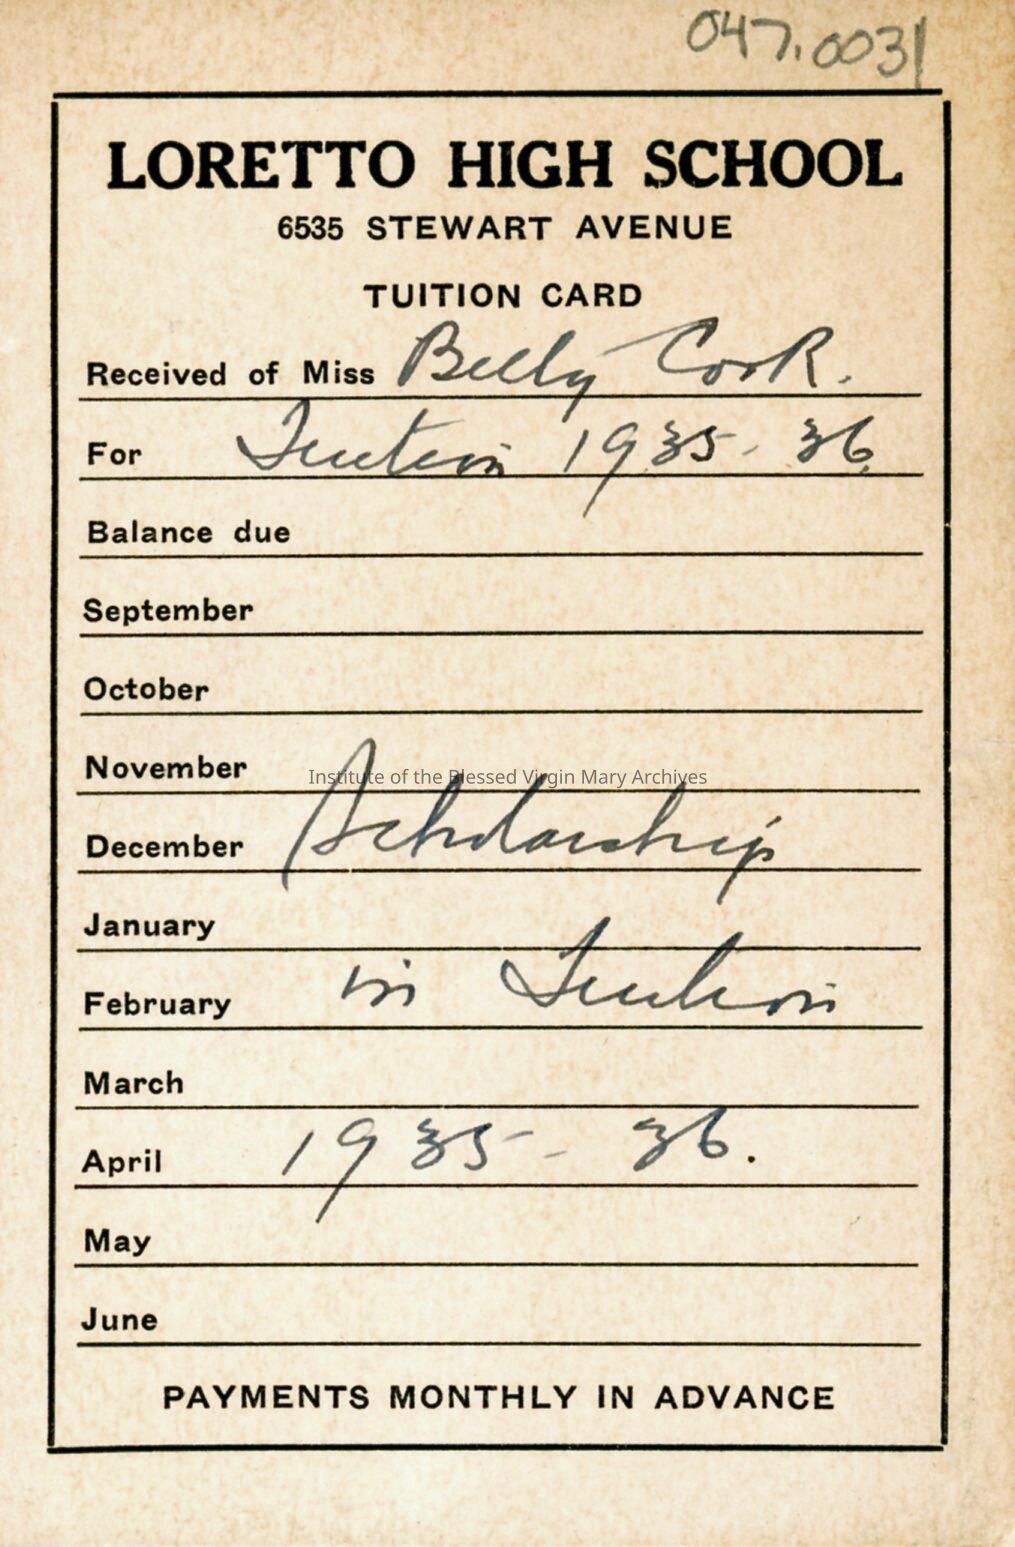 047.0031
LORETTO HIGH SCHOOL
6535 STEWART AVENUE
TUITION CARD
Received of Miss Betty Cook.
For Tuition 1935-36
Balance due
September
October
November
Institute of the Blessed Virgin Mary Archives
December Scholarship
January
February in Tuition
March
April 1935-36.
May
June
PAYMENTS MONTHLY IN ADVANCE